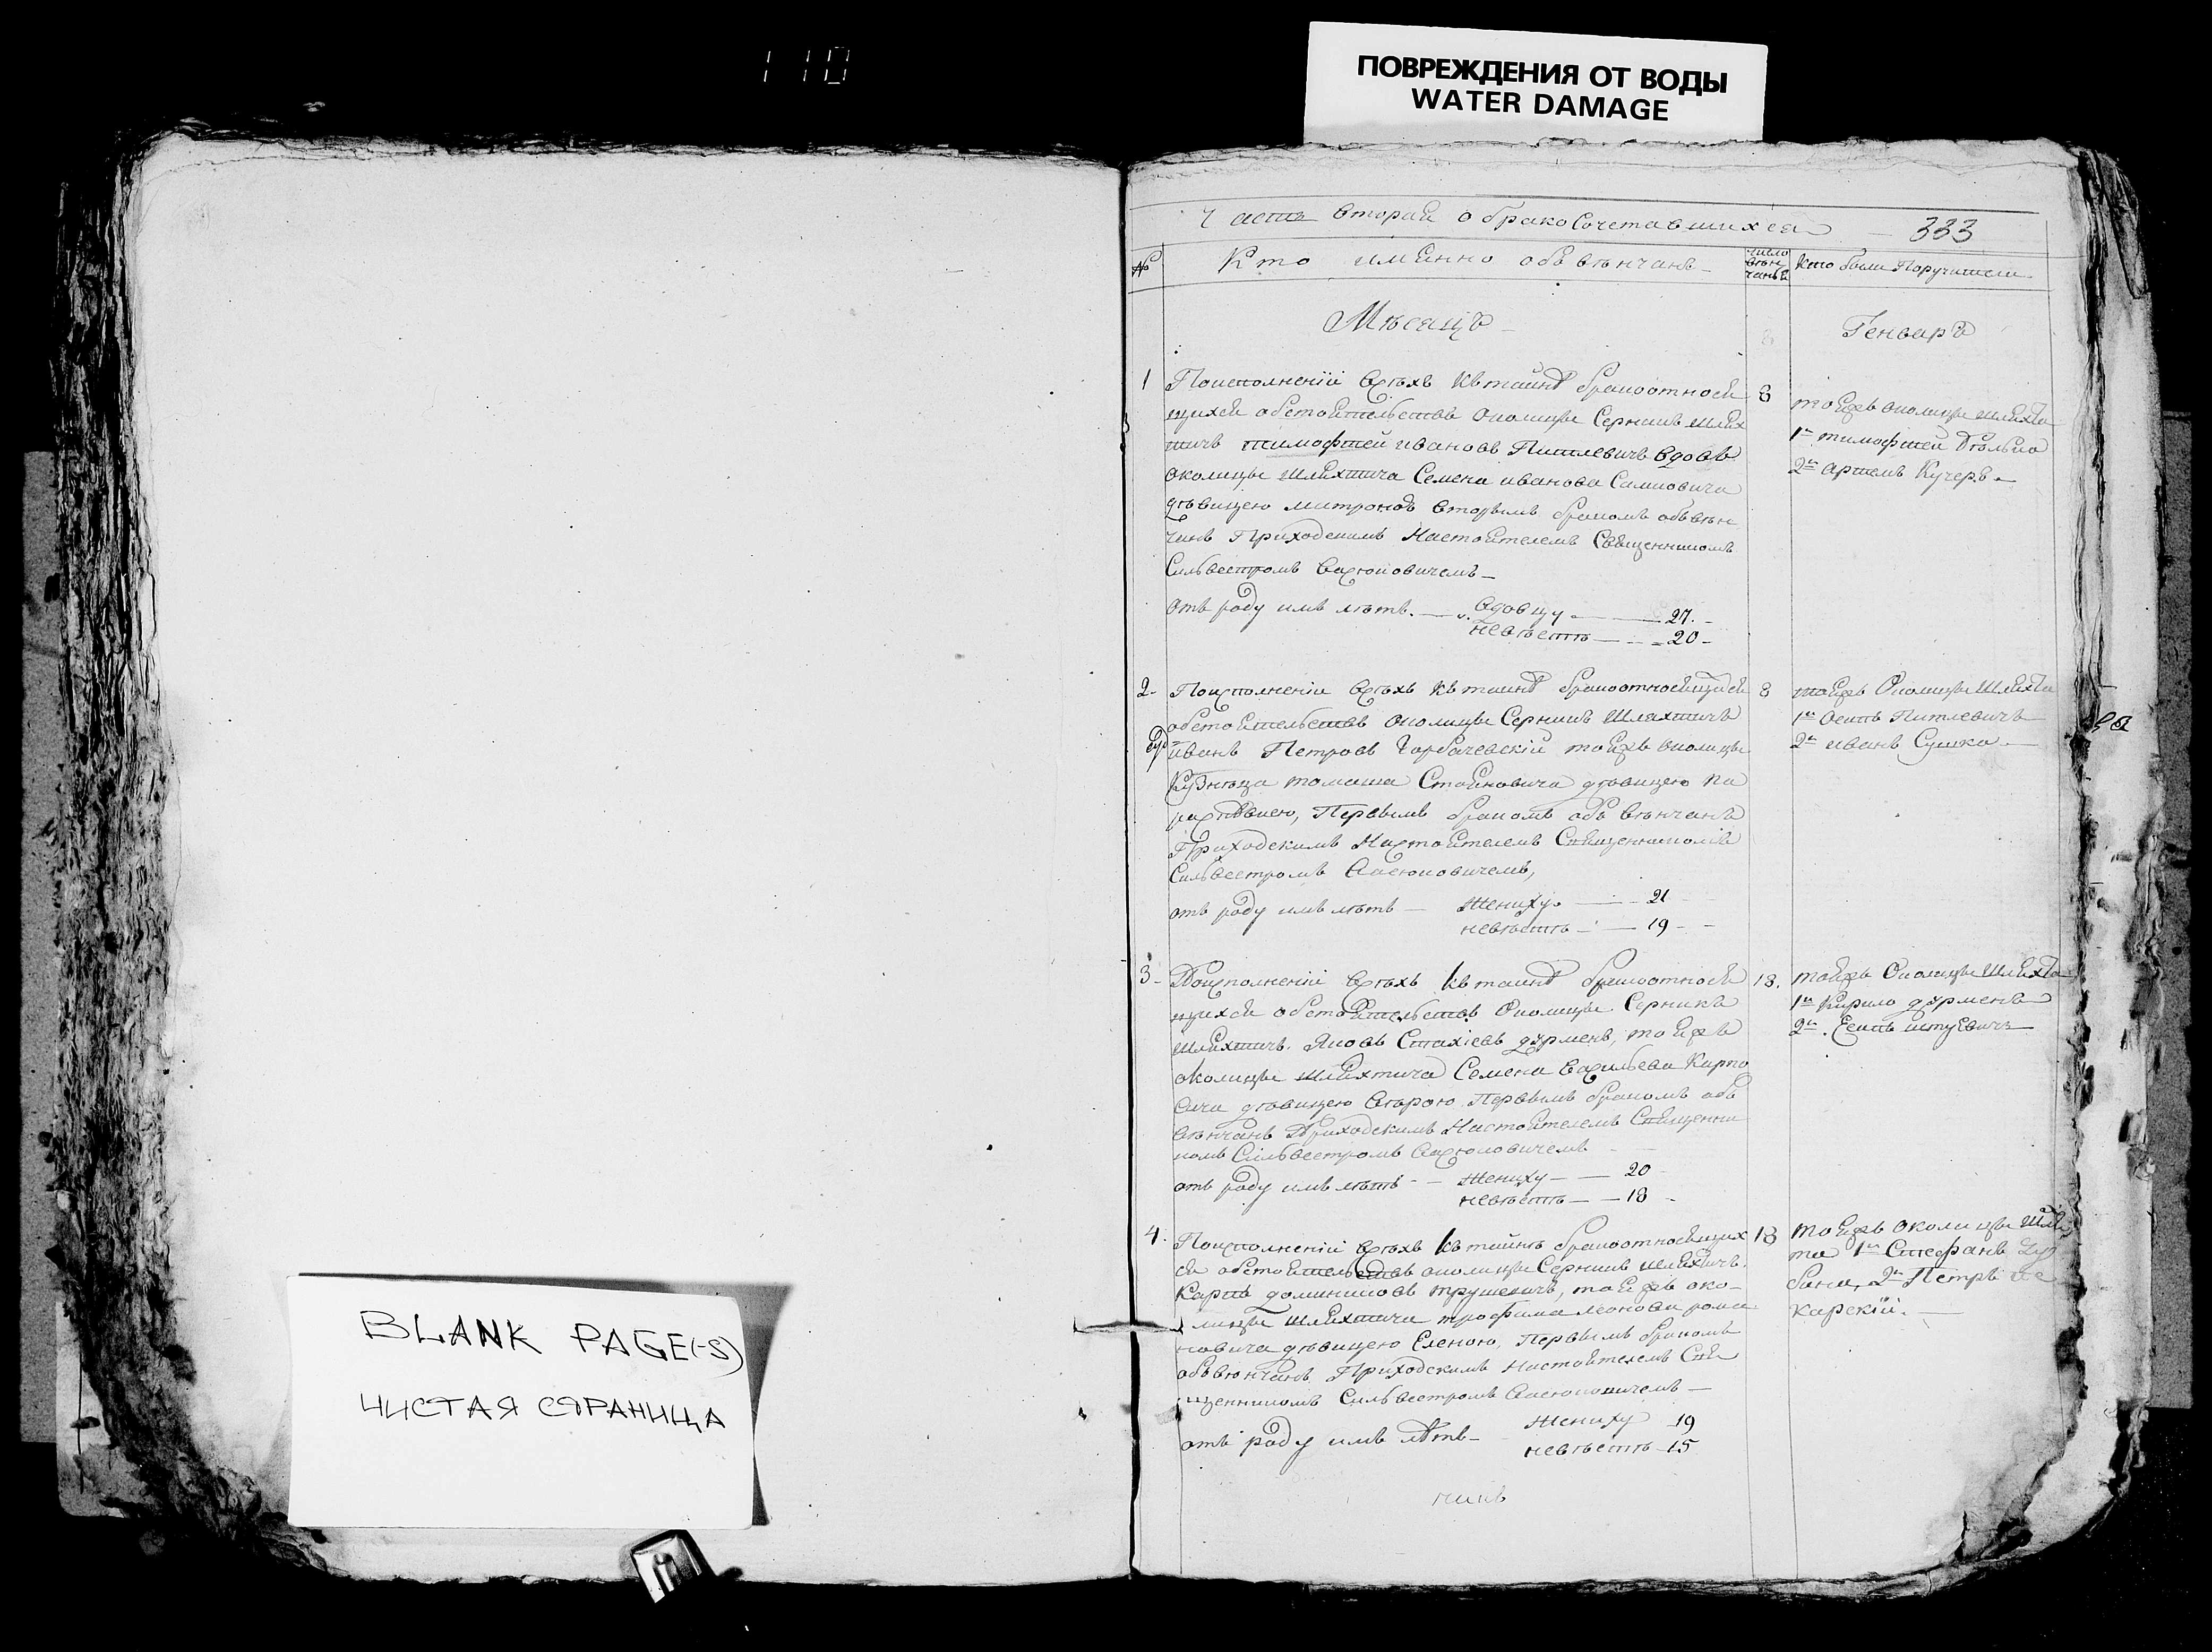 110
ПОВРЕЖДЕНИЯ ОТ ВОДЫ
WATER DAMAGE
BLANK PAGE(-S)
ЧИСТАЯ СТРАНИЦА
Часть вторая о бракосочетавшихся 333
№
Кто именно обвѣнчанъ
число вѣнчанія
кто были Поручители
Мѣсяцъ
Генварь
1
По исполненіи всѣхъ къ таинѣ бракоотнося
щихся обстоятельствъ околицы Серникъ шлях
тичъ тимофтей ивановъ Питлевичъ вдовъ
околицы шляхтича Семена иванова
дѣвицею митроною вторымъ бракомъ обвѣн
чанъ Приходскимъ Настоятелемъ Священникомъ
Сильвестромъ
отъ роду имъ лѣтъ. — вдовцу — 27. -
невѣстѣ — 20 -
8
тоейжъ околицы шляхта
1й тимофтей
2й артемъ Кучеръ
2-
По исполненіи всѣхъ къ таинѣ бракоотносящихся
обстоятельствъ околицы Серникъ Шляхтичъ
иванъ Петровъ Горбачевскій тоейжъ околицы
Кузнеца томаша Стояновича дѣвицею па
раскѣвіею, Первымъ бракомъ обвѣнчанъ
Приходскимъ Настоятелемъ Священникомъ
Сильвестромъ
отъ роду имъ лѣтъ — жениху — 21
невѣстѣ — 19 -
8
тоейжъ Околицы Шляхта
1й Осипъ Питлевичъ
2й иванъ Сушко
3-
По исполненіи всѣхъ къ таинѣ бракоотнося
щихся обстоятельствъ Околицы Серникъ
шляхтичъ Яковъ Стахіевъ дурменъ, тоейжъ
околицы шляхтича Семена Василева Карпо
вича дѣвицею Первымъ бракомъ обв
ѣнчанъ Приходскимъ Настоятелемъ Священни
комъ Сильвестромъ
отъ роду имъ лѣтъ - жениху — 20
невѣстѣ — 18
18.
тоейжъ Околицы Шляхта
1й Кирило дурменъ
2й
4.
По исполненіи всѣхъ къ таинѣ бракоотносящих
ся обстоятельствъ околицы Серникъ шляхтичъ
Карпъ доминиковъ трушевичъ, тоейжъ око-
лицы шляхтича трофима леонова рома
новича дѣвицею Еленою, Первымъ бракомъ
обвѣнчанъ Приходскимъ Настоятелемъ Свя
щенникомъ Сильвестромъ
отъ роду имъ лѣтъ - жениху 19
невѣстѣ - 15
18
тоейжъ околицы шлях
та 1й Стефанъ
2й Петръ
карскій.